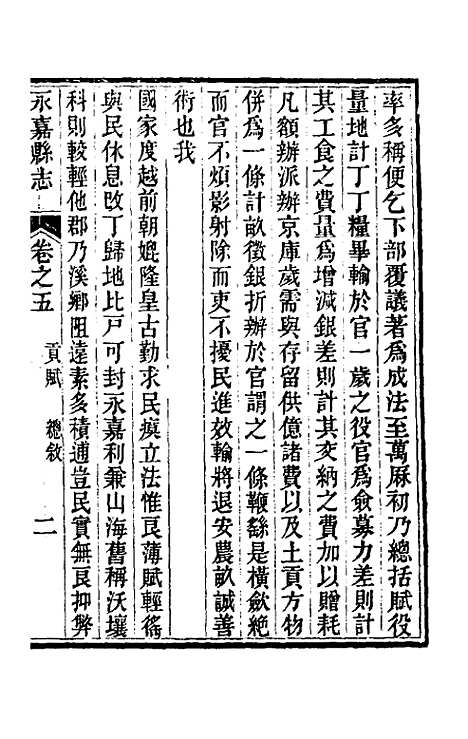 率多稱便乞下部覆議著爲成法至萬厤初乃總括賦役
量地計丁丁糧畢輸於官一歲之役官爲僉募力差則計
其工食之費量爲增減銀差則計其交納之費加以贈耗
凡額辦派辦京庫歲需與存留供億諸費以及土貢方物
併爲一條計畝徵銀折辦於官謂之一條鞭繇是橫歛絶
而官不煩影射除而吏不擾民進效輸將退安農畝誠善
術也我
國家度越前朝媲隆皇古勤求民瘼立法惟良薄賦輕徭
與民休息攺丁歸地比戸可封永嘉利兼山海舊稱沃壤
科則較輕他郡乃溪鄉阻遠素多積逋豈民實無良抑弊
永嘉縣志
卷之五
貢賦 總敘
二